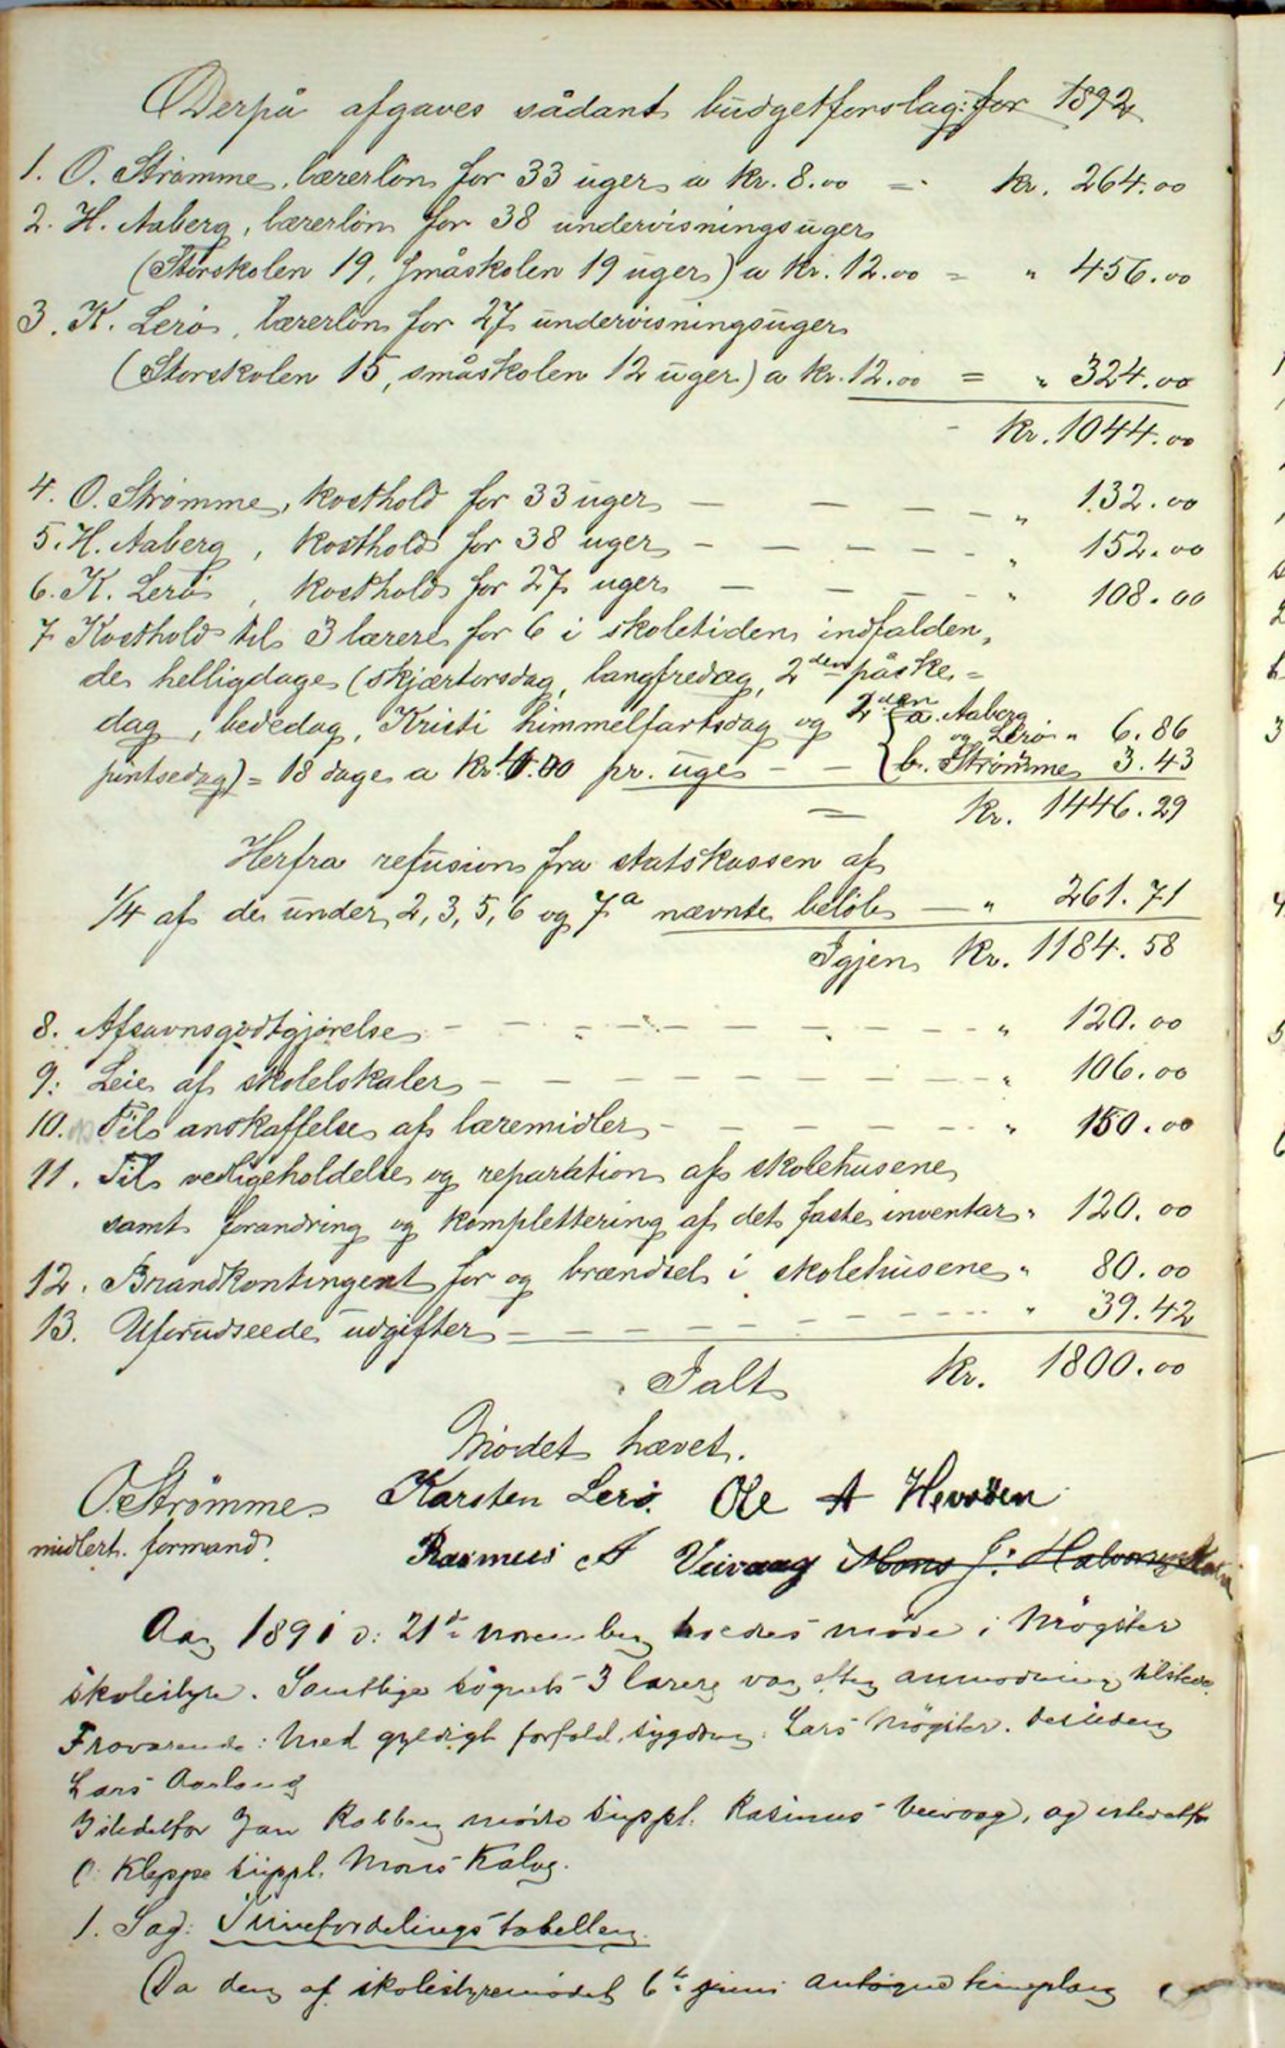 Derpå afgaves sådant budgetforslag: for 1892
1. O. Strømme, lærerløn for 33 uger a kr. 8.00 = kr. 264.00
2. H. Aaberg, lærerløn for 38 undervisningsuger
(Storskolen 19, småskolen 19 uger) a kr. 12.00 = " 456.00
3. K. Lerø, lærerløn for 27 undervisningsuger
(Storskolen 15, småskolen 12 uger) a kr. 12.00 = " 324.00
kr. 1044.00
4. O. Strømme, kosthold for 33 uger — — — — " 132.00
5. H. Aaberg, kosthold for 38 uger — — — — " 152.00
6. K. Lerø, kosthold for 27 uger — — — — " 108.00
7 Kosthold til 3 lærere for 6 i skoletiden indfalden,
de helligdage (skjærtorsdag, langfredag, 2den påske=
dag, bededag, Kristi himmelfartsdag og 2den { a. Aaberg
og Lerø " 6.86
pintsedag) = 18 dage a kr. 4.00 pr. uge — — { b. Strømme 3.43
= kr. 1446.29
Herfra refusion fra statskassen af
1/4 af de under 2, 3, 5, 6 og 7a nævnte beløb — " 261.71
Igjen kr. 1184.58
8. Afsavnsgodtgjørelse — — — — — — " 120.00
9. Leie af skolelokaler — — — — — — " 106.00
10. Til anskaffelse af læremidler — — — — — " 150.00
11. Til vedligeholdelse og reparation af skolehusene
samt forandring og komplettering af det faste inventar " 120.00
12. Brandkontingent for og brændsel i skolehusene " 80.00
13. Uforudseede udgifter — — — — — — " 39.42
Ialt kr. 1800.00
Mødet hævet.
O. Strømme Karsten Lerø. Ole A Hevrøen
midlert. formand. Rasmus A Veivaag Mons J. Halvorsen
Aar 1891 d: 21de november holdtes møde i Møgster
skolestyre. Samtlige sognets 3 lærere var efter anmodning tilstede.
Fraværende: Med gyldigt forfald, sygdom: Lars Møgster. desuden
Lars
Istedetfor Jan Rabben mødte suppl. Rasmus Veivaag, og istedetfor
O. Kleppe suppl. Mons Kalve.
1. Sag: Timefordelingstabellen.
Da den af skolestyremødet 6te juni antagne timeplan